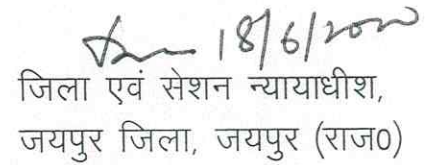 18/6/2020
जिला एवं सेशन न्यायाधीश,
जयपुर जिला, जयपुर (राज0)